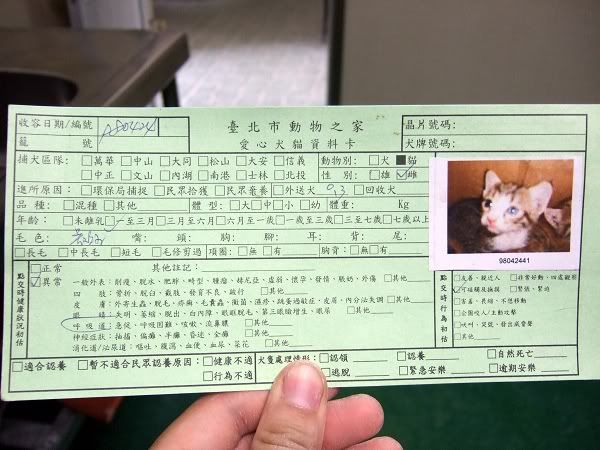 收容日期/編號 A80424
籠 號
臺北市動物之家
愛心犬貓資料卡
晶片號碼:
犬牌號碼:
捕犬區隊: □萬華 □中山 □大同 □松山 □大安 □信義 動物別: □犬 ■貓
□中正 □文山 □內湖 □南港 □士林 □北投 性 別: □雄 ☑雌
進所原因: □環保局捕捉 □民眾拾獲 □民眾棄養 □外送犬 □回收犬
品 種: □混種 □其他 體 型: □大 □中 □小 □幼 體重: Kg
年齡: □未離乳 □一至三月 □三月至六月 □六月至一歲 □一歲至三歲 □三至七歲 □七歲以上
毛 色: 嘴: 頭: 胸: 腳: 耳: 背: 尾:
□長毛 □中長毛 □短毛 □毛修剪過 項圈: □無 □有 胸背: □無 □有
98042441
點交時健康狀況初估
□正常
☑異常
其他註記:
一般外表: 削瘦、脫水、肥胖、畸型、腫瘤、赫尼亞、虛弱、懷孕、發情、脹奶、外傷 □其他
四 肢: 骨折、脫臼、截肢、發育不良、跛行 □其他
皮 膚: 外寄生蟲、脫毛、疥癬、毛囊蟲、黴菌、濕疹、跳蚤過敏症、皮屑、內分泌失調 □其他
眼 睛: 失明、萎縮、脫出、白內障、眼瞼脫毛、第三眼瞼增生、眼屎 □其他
呼 吸 道: 急促、呼吸困難、咳嗽、流鼻膿 □其他
神經症狀: 抽搐、偏癱、半癱、昏迷、全癱 □其他
消化道/泌尿道: 嘔吐、腹瀉、血便、血尿、菜花 □其他
點交時行為初估
□友善、親近人 □非常好動、四處觀察
☑可碰觸及撫摸 □緊張、緊迫
□害羞、畏縮、不想移動
□企圖咬人/主動攻擊
□吠叫、哭號、發出威脅聲
□其他
□適合認養 □暫不適合民眾認養原因: □健康不適 犬隻處理情形: □認領 □認養 □自然死亡
□行為不適 □逃脫 □緊急安樂 □逾期安樂